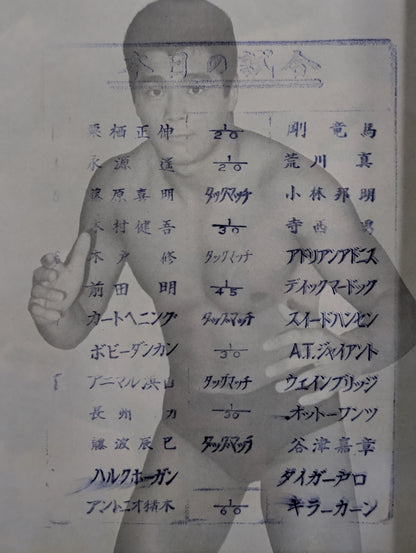 本日の試合
栗栖正伸 1/20 剛竜馬
永源遥 1/20 荒川真
篠原真明 タッグマッチ 小林邦明
木村健吾 1/30 寺西勇
木戸修 タッグマッチ アドリアンアドニス
前田明 1/45 ディックマードック
カートヘニング タッグマッチ スイードハンセン
ボビーダンカン 1/30 A.T.ジャイアント
アニマル浜口 タッグマッチ ウェインブリッジ
長州力 1/30 オットーワンツ
藤波辰巳 タッグマッチ 谷津嘉章
ハルクホーガン タイガー戸口
アントニオ猪木 1/60 キラーカーン